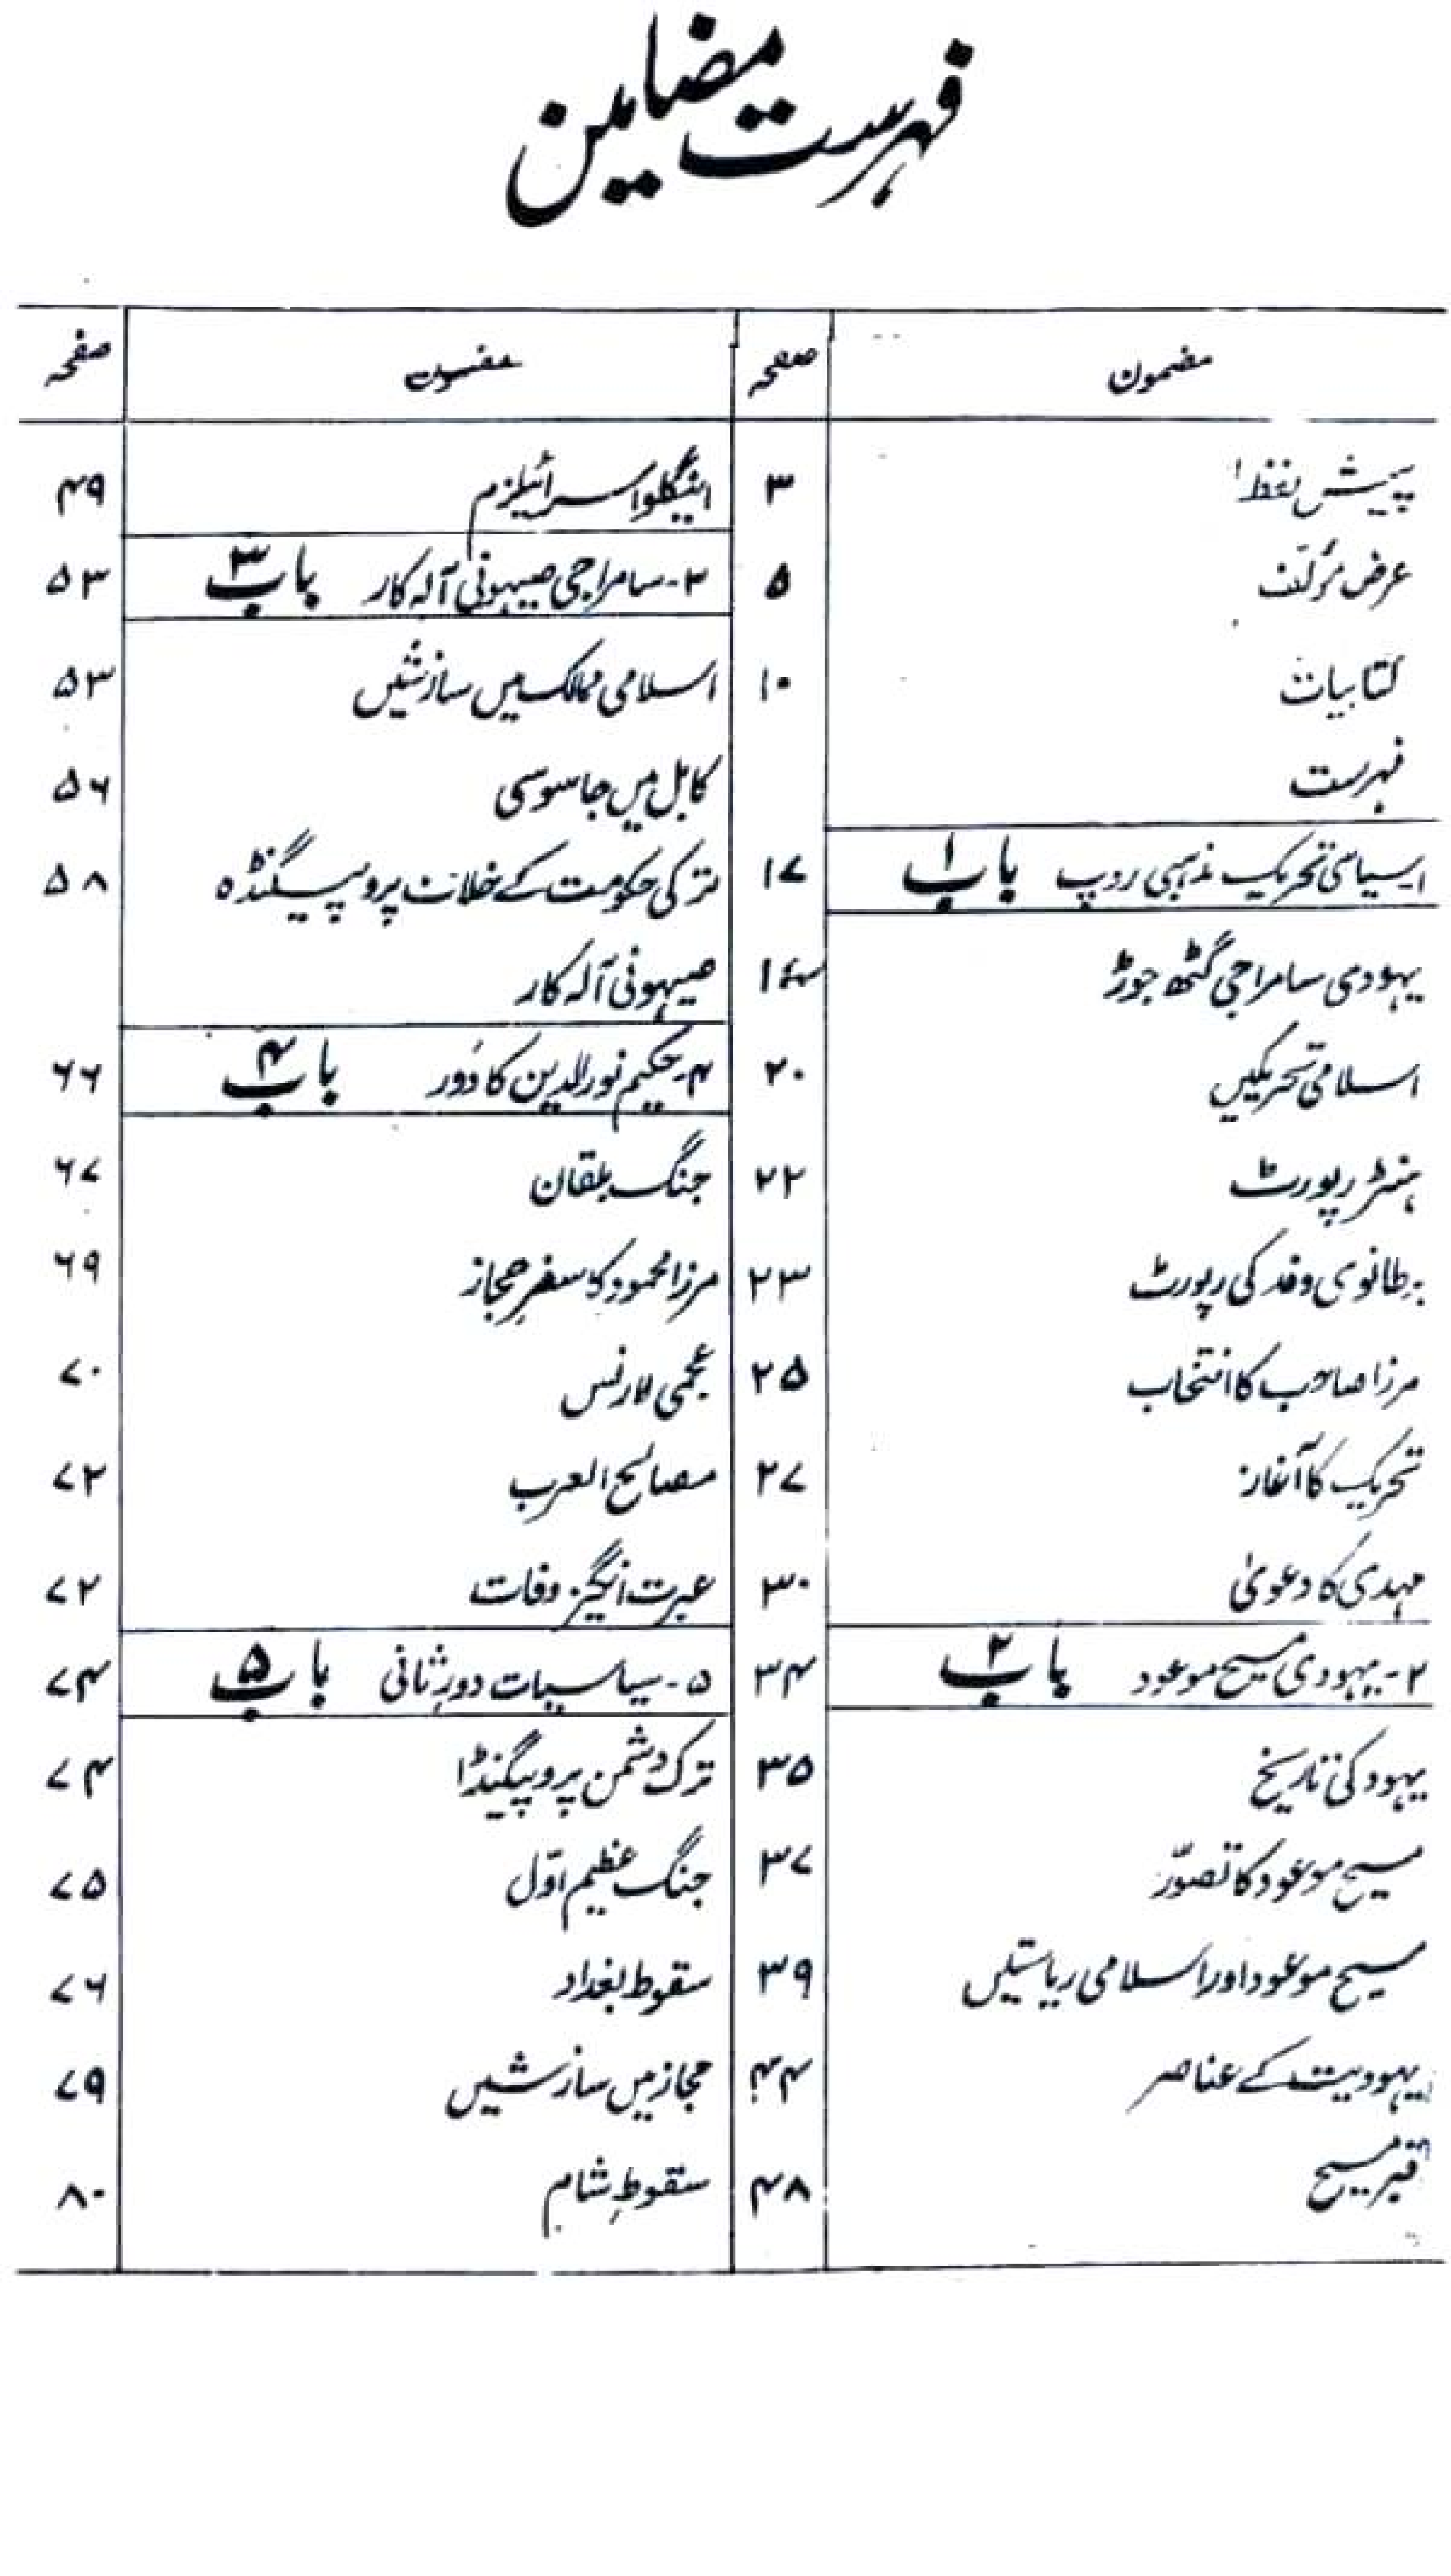 فہرست مضامین
مضمون صفحہ
پیش لفظ ۳
عرض مؤلف ۵
کتابیات ۱۰
فہرست
۱۔ سیاسی تحریک مذہبی روپ باب ۱ ۱۷
یہودی سامراجی گٹھ جوڑ
اسلامی تحریکیں ۲۰
ہنٹر رپورٹ ۲۲
برطانوی وفد کی رپورٹ ۲۳
مرزا صاحب کا انتخاب ۲۵
تحریک کا آغاز ۲۷
مہدی کا دعویٰ ۳۰
۲۔ یہودی مسیح موعود باب ۲ ۳۴
یہود کی تاریخ ۳۵
مسیح موعود کا تصوّر ۳۷
مسیح موعود اور اسلامی ریاستیں ۳۹
یہودیت کے عناصر ۴۴
قبر مسیح ۴۸
مضمون صفحہ
اینگلو اسرائیلزم ۴۹
۳۔ سامراجی صیہونی آلہ کار باب ۳ ۵۳
اسلامی ممالک میں سازشیں ۵۳
کابل میں جاسوسی ۵۶
ترکی حکومت کے خلاف پروپیگنڈہ ۵۸
صیہونی آلہ کار
۴۔ حکیم نور الدین کا دَور باب ۴ ۶۶
جنگ بلقان ۶۷
مرزا محمود کا سفرِ حجاز ۶۹
عجمی لارنس ۷۰
مصالح العرب ۷۲
عبرت انگیز وفات ۷۲
۵۔ سیاسیات دورِ ثانی باب ۵ ۷۴
ترک دشمن پروپیگنڈا ۷۴
جنگ عظیم اوّل ۷۵
سقوط بغداد ۷۶
حجاز میں سازشیں ۷۹
سقوطِ شام ۸۰